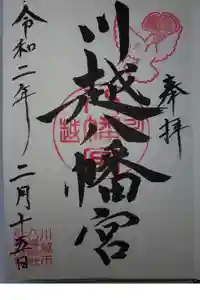 奉拝
川越八幡宮
令和二年 二月十五日
川越市
八幡社